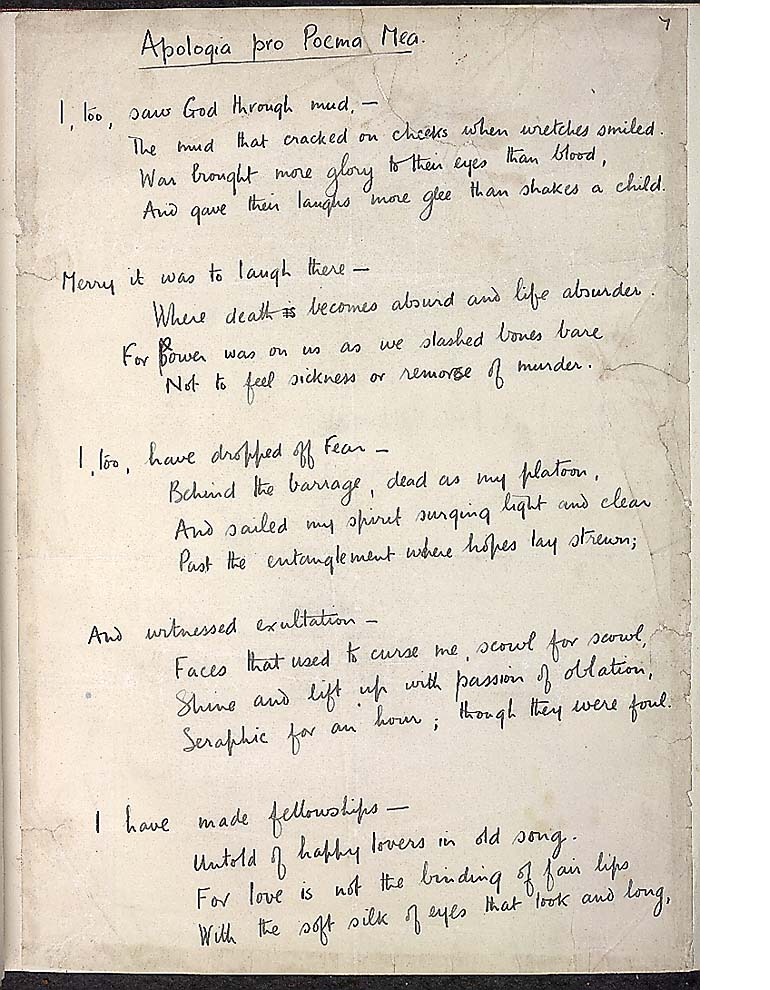 7
Apologia pro Poema Mea.
I, too, saw God through mud, —
The mud that cracked on cheeks when wretches smiled.
War brought more glory to their eyes than blood,
And gave their laughs more glee than shakes a child.
Merry it was to laugh there —
Where death is becomes absurd and life absurder.
For power was on us as we slashed bones bare
Not to feel sickness or remorse of murder.
I, too, have dropped off Fear —
Behind the barrage, dead as my platoon,
And sailed my spirit surging light and clear
Past the entanglement where hopes lay strewn;
And witnessed exultation —
Faces that used to curse me, scowl for scowl,
Shine and lift up with passion of oblation,
Seraphic for an hour; though they were foul.
I have made fellowships —
Untold of happy lovers in old song.
For love is not the binding of fair lips
With the soft silk of eyes that look and long,